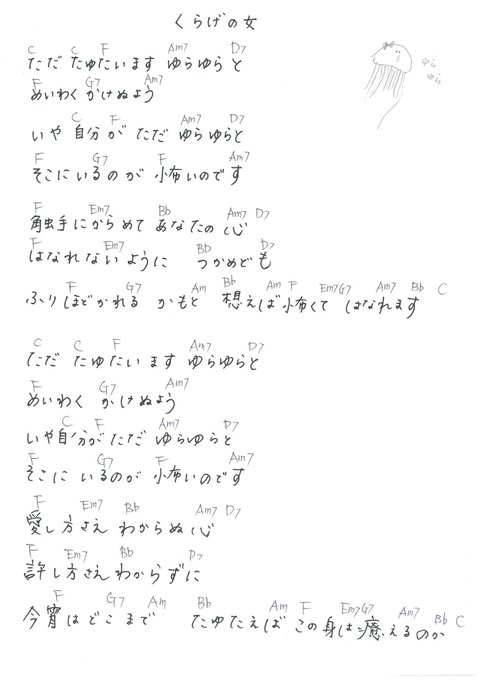 くらげの女
C C F Am7 D7
ただ たゆたいます ゆらゆら と
ゆら
ゆら
F G7 Am7
めいわく かけぬよう
C F Am7 D7
いや 自分 が ただ ゆらゆらと
F G7 F Am7
そこに いるの が 怖いのです
F Em7 Bb Am7 D7
触手に からめて あなたの 心
F Em7 Bb D7
はなれ ないように つかめども
F G7 Am Bb Am F Em7 G7 Am7 Bb C
ふりほどかれる かもと 想えば 怖くて はなれます
C C F Am7 D7
ただ たゆたい ます ゆらゆらと
F G7 Am7
めいわく かけぬよう
C F Am7 D7
いや自分が ただ ゆらゆらと
F G7 F Am7
そこに いるのが 怖いのです
F Em7 Bb Am7 D7
愛し方さえ わからぬ 心
F Em7 Bb D7
許し方さえ わからずに
F G7 Am Bb Am F Em7 G7 Am7 Bb C
今宵は どこ まで たゆたえば この 身は 癒えるのか